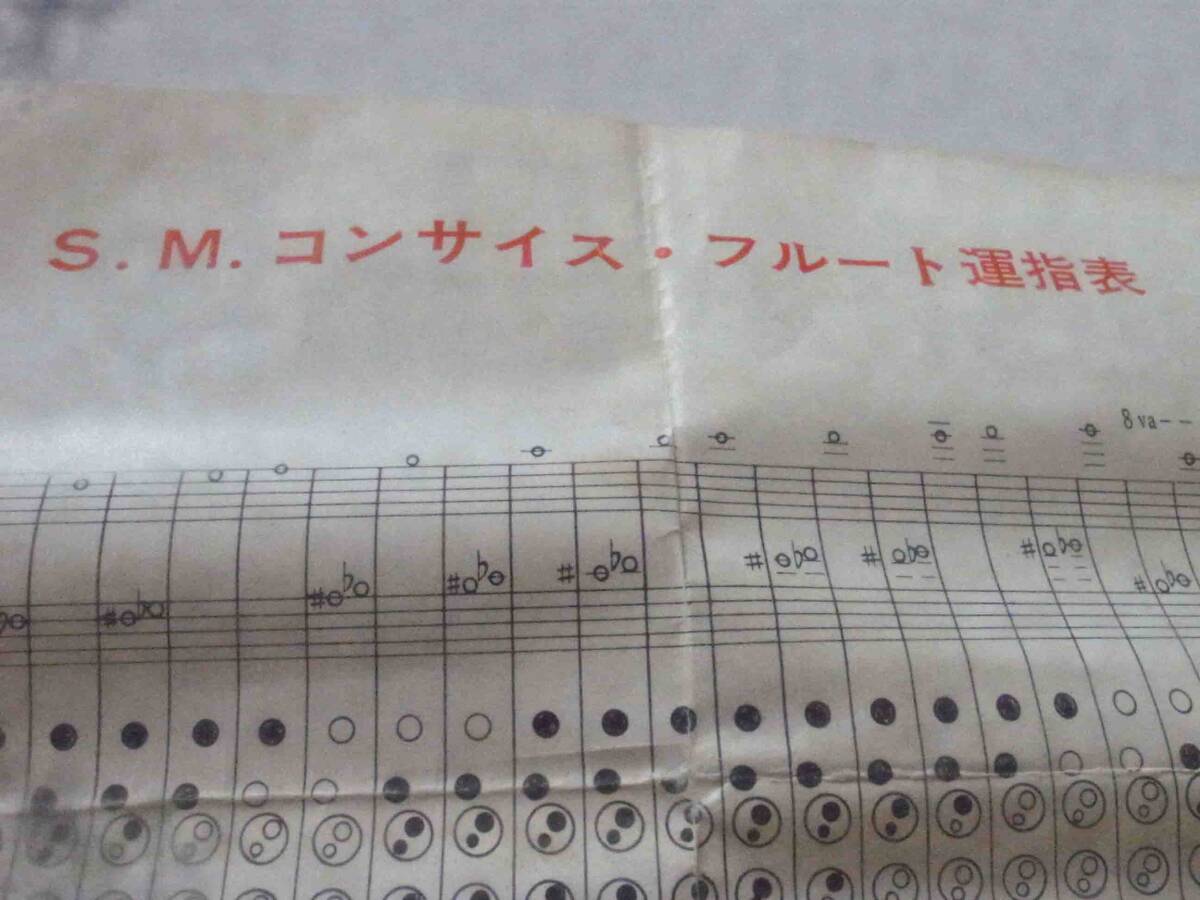 S.M.コンサイス・フルート運指表
8va--